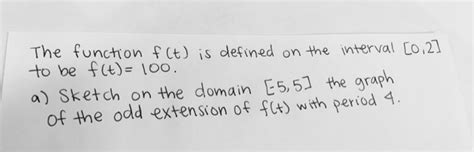 The function f(t) is defined on the interval [0,2]
to be f(t)= 100.
a) Sketch on the domain [-5,5] the graph
of the odd extension of f(t) with period 4.